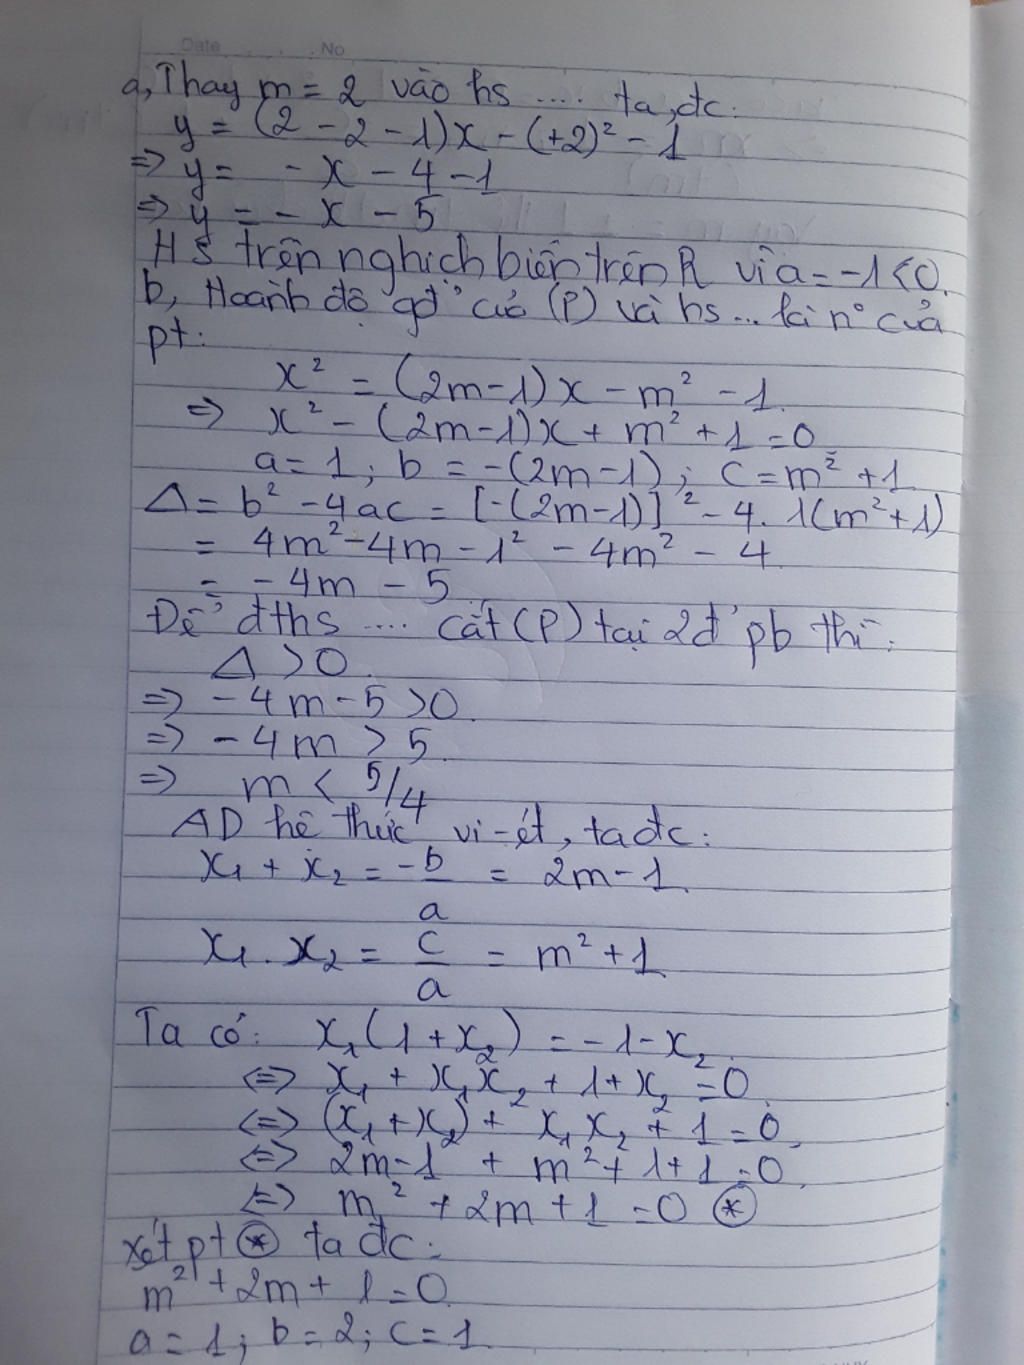 Date . . . No
a, Thay m = 2 vào hs .... ta đc:
y = (2 - 2 - 1)x - (+2)² - 1
=> y = - x - 4 - 1
=> y = - x - 5
HS trên nghịch biến trên R vì a = -1 < 0.
b, Hoành độ gđ' của (P) và hs ... là n° của
pt:
x² = (2m-1)x - m² - 1
=> x² - (2m-1)x + m² + 1 = 0
a = 1 ; b = -(2m-1) ; c = m² + 1
Δ = b² - 4ac = [-(2m-1)]² - 4. 1(m²+1)
= 4m² - 4m - 1² - 4m² - 4
= - 4m - 5
Để đths .... cắt (P) tại 2đ' pb thì:
Δ > 0
=> - 4m - 5 > 0
=> - 4m > 5
=> m < 5/4
AD hê thức vi-ét, ta đc:
x₁ + x₂ = -b/a = 2m - 1
x₁ . x₂ = c/a = m² + 1
Ta có: x₁(1 + x₂) = -1 - x₂
<=> x₁ + x₁x₂ + 1 + x₂ = 0
<=> (x₁ + x₂) + x₁x₂ + 1 = 0
<=> 2m - 1 + m² + 1 + 1 = 0
<=> m² + 2m + 1 = 0 (*)
xét pt (*) ta đc:
m² + 2m + 1 = 0
a = 1 ; b = 2 ; c = 1